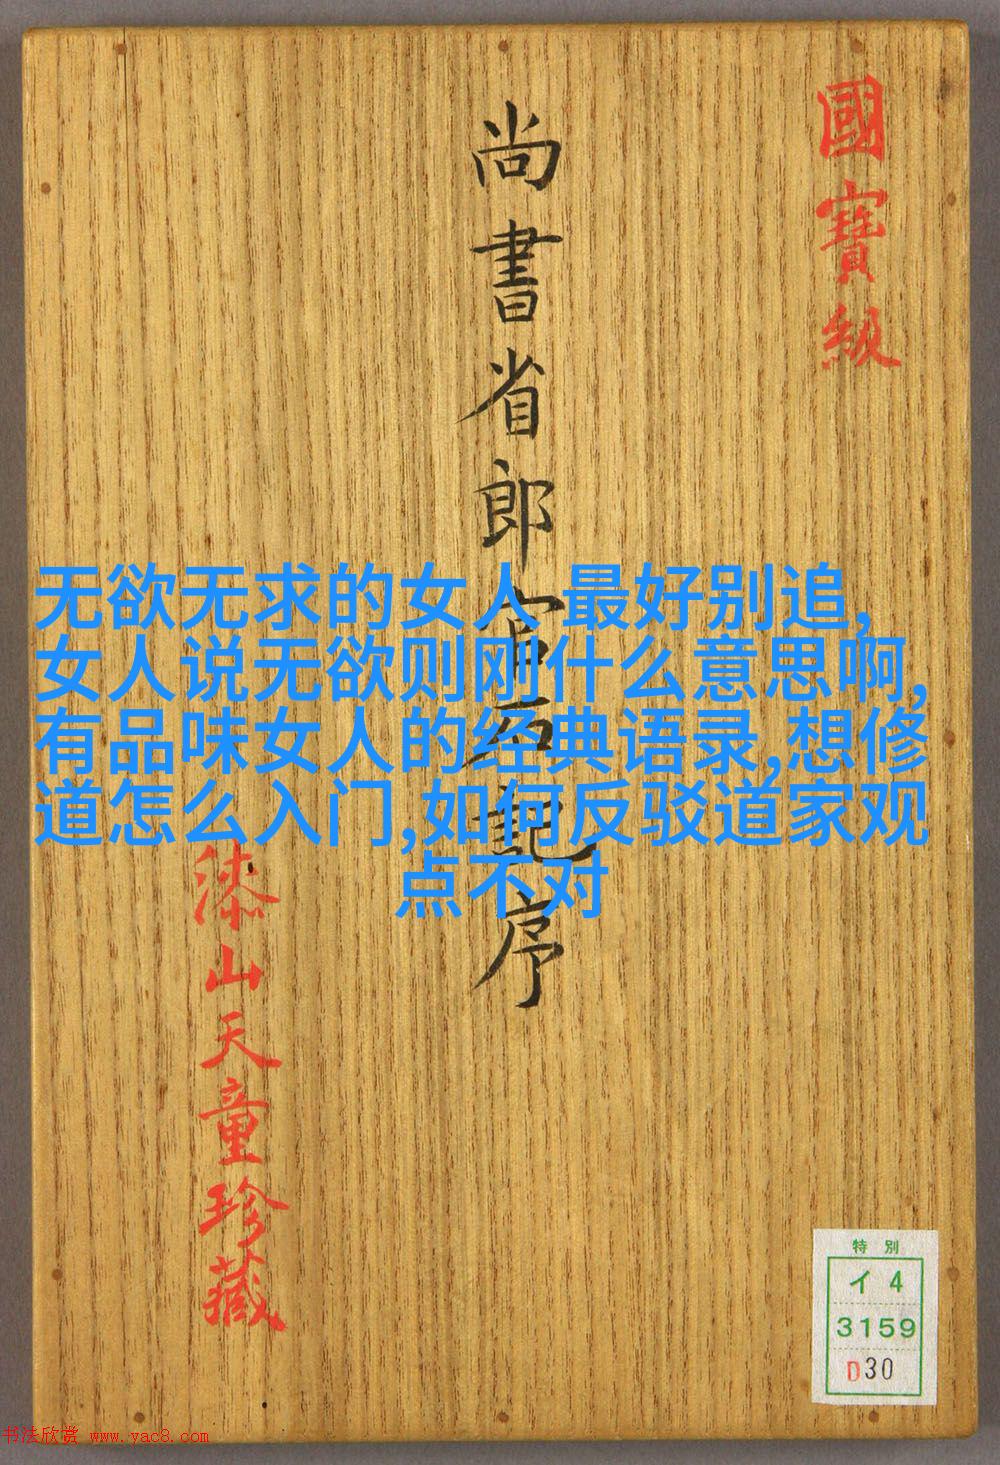 國寶級
尚書省郎官石記序
漆山天童珍藏
无欲无求的女人 最好别追,
女人说无欲则刚什么意思啊,
有品味女人的经典语录,想修
道怎么入门,如何反驳道家观
点不对
特別
イ4
3159
D30
书法欣赏 www.yac8.com